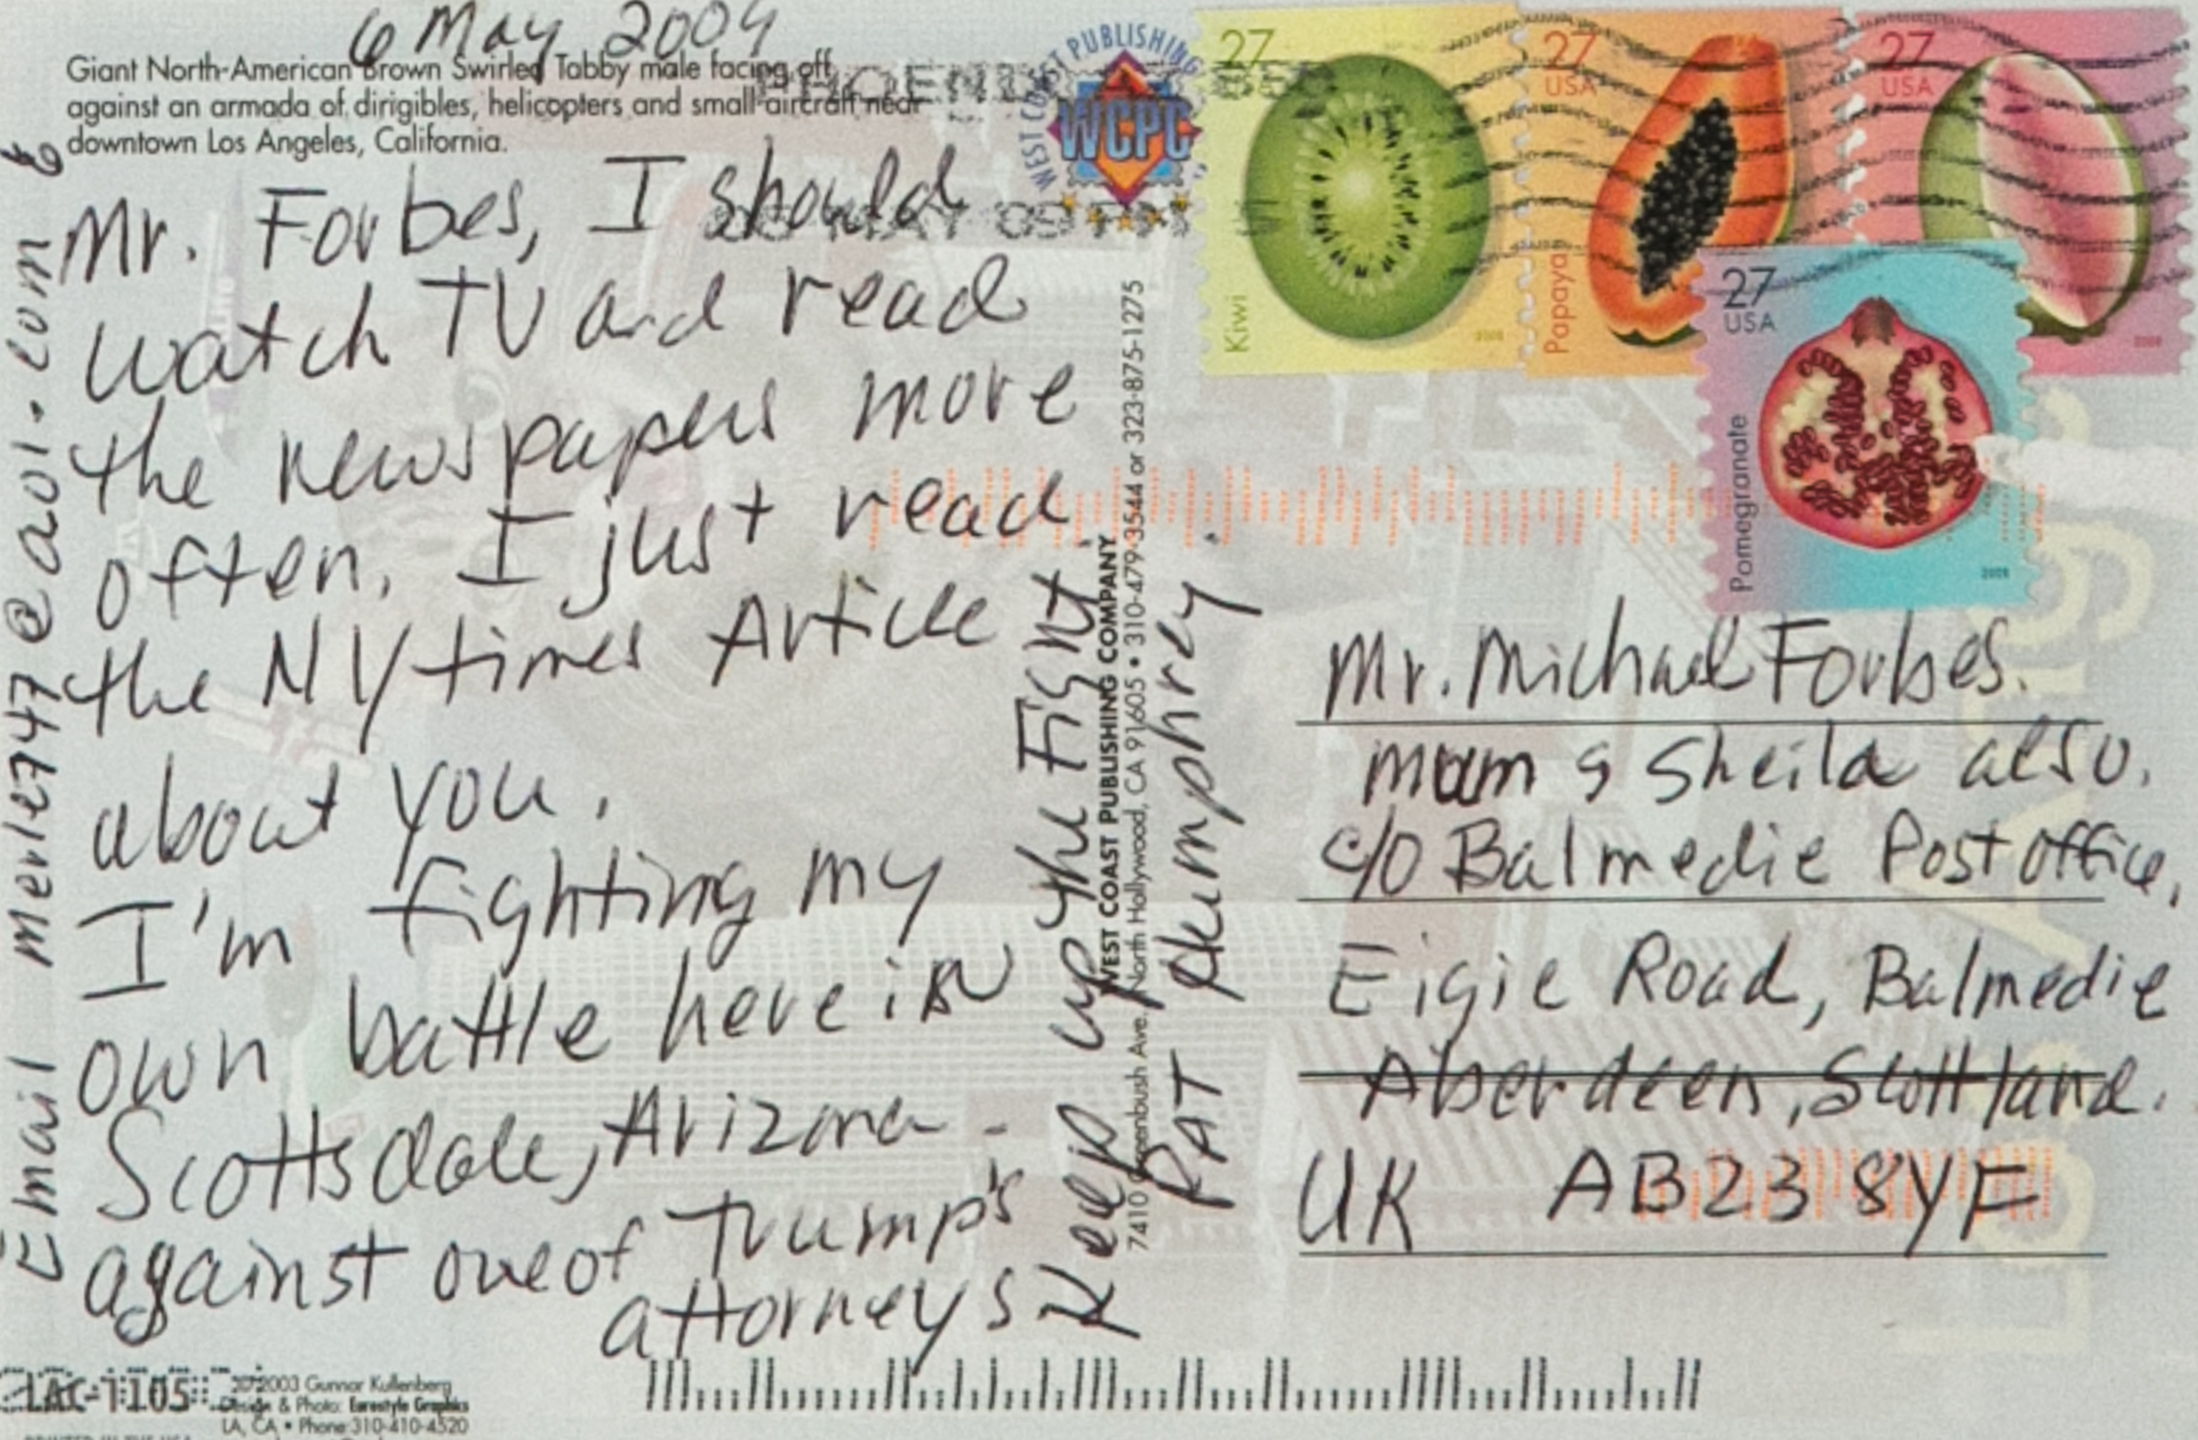 6 May 2009
Giant North-American Brown Swirled Tabby male facing off
against an armada of dirigibles, helicopters and small aircraft near
downtown Los Angeles, California.
Mr. Forbes, I should
watch TV and read
the newspapers more
often. I just read
the NY times Article
about you.
I'm fighting my
own battle here in
Scottsdale, Arizona -
against one of Trump's
attorneys
Keep up the Fight.
PAT Humphrey.
Email merle747@aol.com
WEST COAST PUBLISHING
WCPC
PHOENIX
MAY 09
WEST COAST PUBLISHING COMPANY
7410 Greenbush Ave. North Hollywood, CA 91605 • 310-479-3544 or 323-875-1275
27
Kiwi
2008
27
USA
Papaya
27
USA
2008
27
USA
Pomegranate
2008
Mr. Michael Forbes.
mum & Sheila also.
c/o Balmedie Post office,
Eigie Road, Balmedie
Aberdeen, Scottland.
UK AB23 8YF
Los Angel
LAC-1105
© 2003 Gunnar Kullenberg
Design & Photo: Eurostyle Graphics
LA, CA • Phone 310-410-4520
PRINTED IN THE USA